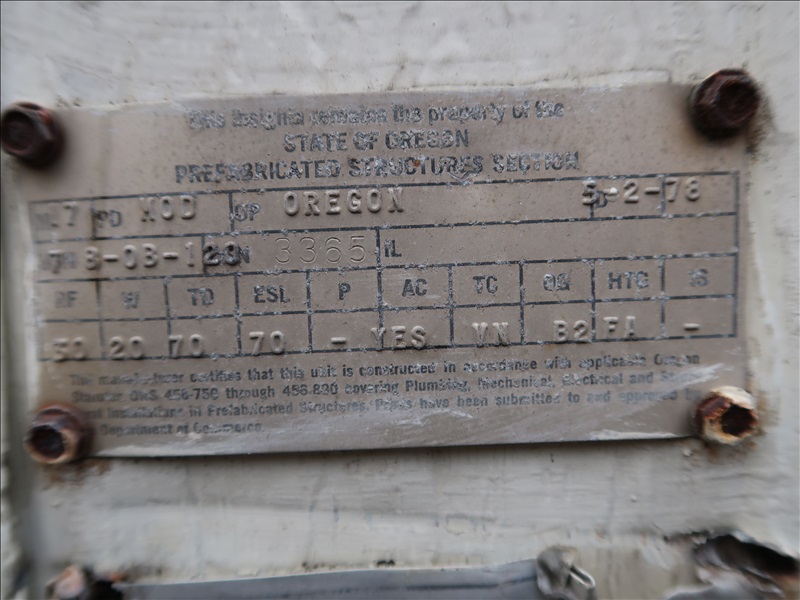 This insignia remains the property of the
STATE OF OREGON
PREFABRICATED STRUCTURES SECTION
7 MOD OREGON 5-2-78
3365 IL
W TD ESL P AC TC HTG IS
50 20 70 70 - YES VN B2 FA -
The manufacturer certifies that this unit is constructed in accordance with applicable Oregon
Statutes ORS. 456-750 through 456-830 covering Plumbing, Mechanical, Electrical and
Installations in Prefabricated Structures. Plans have been submitted to and approved
Department of Commerce.